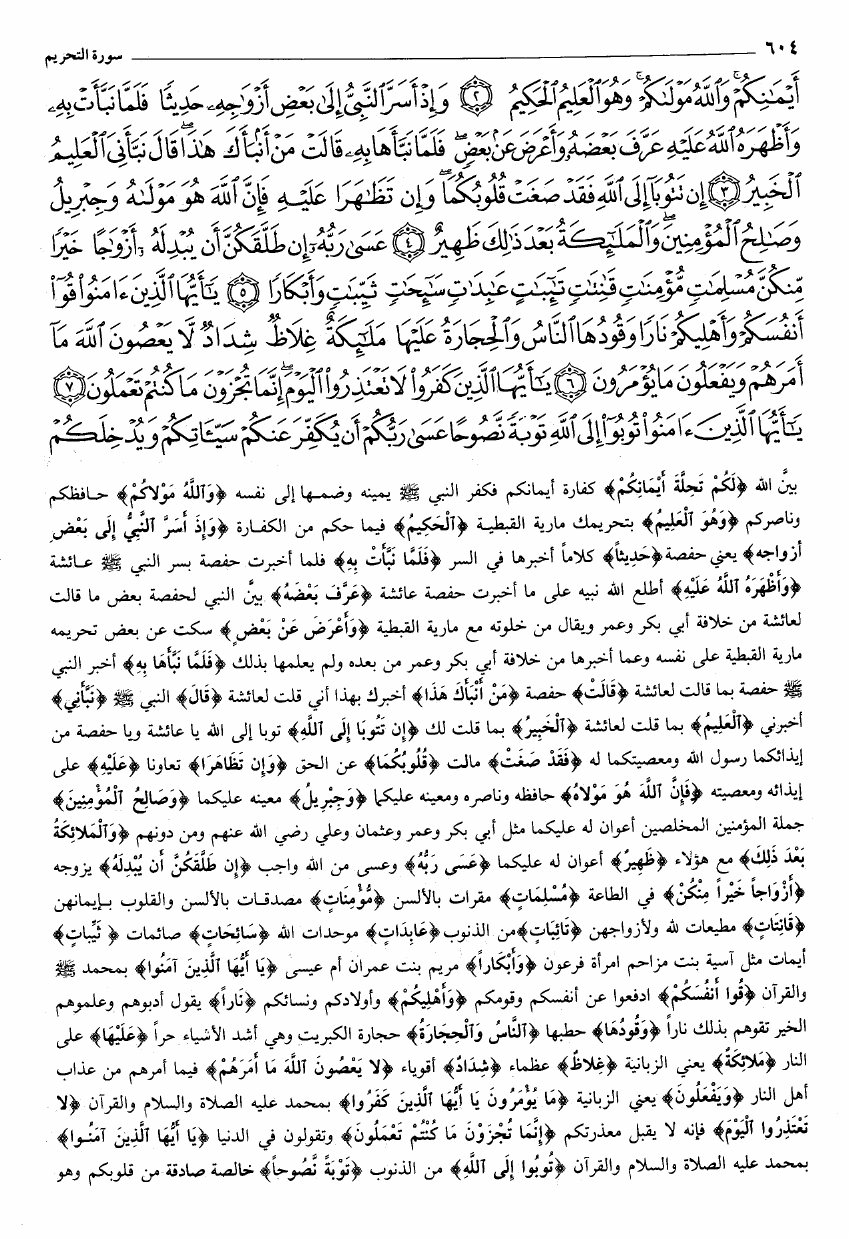 ٦٠٤ سورة التحريم
أَيْمَٰنِكُمْ ۚ وَٱللَّهُ مَوْلَىٰكُمْ ۖ وَهُوَ ٱلْعَلِيمُ ٱلْحَكِيمُ ٢ وَإِذْ أَسَرَّ ٱلنَّبِىُّ إِلَىٰ بَعْضِ أَزْوَٰجِهِۦ حَدِيثًا فَلَمَّا نَبَّأَتْ بِهِۦ
وَأَظْهَرَهُ ٱللَّهُ عَلَيْهِ عَرَّفَ بَعْضَهُۥ وَأَعْرَضَ عَنۢ بَعْضٍ ۖ فَلَمَّا نَبَّأَهَا بِهِۦ قَالَتْ مَنْ أَنۢبَأَكَ هَٰذَا ۖ قَالَ نَبَّأَنِىَ ٱلْعَلِيمُ
ٱلْخَبِيرُ ٣ إِن تَتُوبَآ إِلَى ٱللَّهِ فَقَدْ صَغَتْ قُلُوبُكُمَا ۖ وَإِن تَظَٰهَرَا عَلَيْهِ فَإِنَّ ٱللَّهَ هُوَ مَوْلَىٰهُ وَجِبْرِيلُ
وَصَٰلِحُ ٱلْمُؤْمِنِينَ ۖ وَٱلْمَلَٰٓئِكَةُ بَعْدَ ذَٰلِكَ ظَهِيرٌ ٤ عَسَىٰ رَبُّهُۥٓ إِن طَلَّقَكُنَّ أَن يُبْدِلَهُۥٓ أَزْوَٰجًا خَيْرًا
مِّنكُنَّ مُسْلِمَٰتٍ مُّؤْمِنَٰتٍ قَٰنِتَٰتٍ تَٰٓئِبَٰتٍ عَٰبِدَٰتٍ سَٰٓئِحَٰتٍ ثَيِّبَٰتٍ وَأَبْكَارًا ٥ يَٰٓأَيُّهَا ٱلَّذِينَ ءَامَنُوا۟ قُوٓا۟
أَنفُسَكُمْ وَأَهْلِيكُمْ نَارًا وَقُودُهَا ٱلنَّاسُ وَٱلْحِجَارَةُ عَلَيْهَا مَلَٰٓئِكَةٌ غِلَاظٌ شِدَادٌ لَّا يَعْصُونَ ٱللَّهَ مَآ
أَمَرَهُمْ وَيَفْعَلُونَ مَا يُؤْمَرُونَ ٦ يَٰٓأَيُّهَا ٱلَّذِينَ كَفَرُوا۟ لَا تَعْتَذِرُوا۟ ٱلْيَوْمَ ۖ إِنَّمَا تُجْزَوْنَ مَا كُنتُمْ تَعْمَلُونَ ٧
يَٰٓأَيُّهَا ٱلَّذِينَ ءَامَنُوا۟ تُوبُوٓا۟ إِلَى ٱللَّهِ تَوْبَةً نَّصُوحًا عَسَىٰ رَبُّكُمْ أَن يُكَفِّرَ عَنكُمْ سَيِّـَٔاتِكُمْ وَيُدْخِلَكُمْ
بيَّن الله ﴿لَكُمْ تَحِلَّةَ أَيْمَانِكُمْ﴾ كفارة أيمانكم فكفر النبي ﷺ يمينه وضمها إلى نفسه ﴿وَٱللَّهُ مَوْلاَكُمْ﴾ حافظكم
وناصركم ﴿وَهُوَ ٱلْعَلِيمُ﴾ بتحريمك مارية القبطية ﴿ٱلْحَكِيمُ﴾ فيما حكم من الكفارة ﴿وَإِذْ أَسَرَّ ٱلنَّبِيُّ إِلَى بَعْضِ
أزواجه﴾ يعني حفصة ﴿حَدِيثاً﴾ كلاماً أخبرها في السر ﴿فَلَمَّا نَبَّأَتْ بِهِ﴾ فلما أخبرت حفصة بسر النبي ﷺ عائشة
﴿وَأَظْهَرَهُ ٱللَّهُ عَلَيْهِ﴾ أطلع الله نبيه على ما أخبرت حفصة عائشة ﴿عَرَّفَ بَعْضَهُ﴾ بيَّن النبي لحفصة بعض ما قالت
لعائشة من خلافة أبي بكر وعمر ويقال من خلوته مع مارية القبطية ﴿وَأَعْرَضَ عَنْ بَعْضٍ﴾ سكت عن بعض تحريمه
مارية القبطية على نفسه وعما أخبرها من خلافة أبي بكر وعمر من بعده ولم يعلمها بذلك ﴿فَلَمَّا نَبَّأَهَا بِهِ﴾ أخبر النبي
ﷺ حفصة بما قالت لعائشة ﴿قَالَتْ﴾ حفصة ﴿مَنْ أَنْبَأَكَ هَذَا﴾ أخبرك بهذا أني قلت لعائشة ﴿قَالَ﴾ النبي ﷺ ﴿نَبَّأَنِي﴾
أخبرني ﴿ٱلْعَلِيمُ﴾ بما قلت لعائشة ﴿ٱلْخَبِيرُ﴾ بما قلت لك ﴿إِن تَتُوبَا إِلَى ٱللَّهِ﴾ توبا إلى الله يا عائشة ويا حفصة من
إيذائكما رسول الله ومعصيتكما له ﴿فَقَدْ صَغَتْ﴾ مالت ﴿قُلُوبُكُمَا﴾ عن الحق ﴿وَإِن تَظَاهَرَا﴾ تعاونا ﴿عَلَيْهِ﴾ على
إيذائه ومعصيته ﴿فَإِنَّ ٱللَّهَ هُوَ مَوْلاَهُ﴾ حافظه وناصره ومعينه عليكما ﴿وَجِبْرِيلُ﴾ معينه عليكما ﴿وَصَالِحُ ٱلْمُؤْمِنِينَ﴾
جملة المؤمنين المخلصين أعوان له عليكما مثل أبي بكر وعمر وعثمان وعلي رضي الله عنهم ومن دونهم ﴿وَٱلْمَلاَئِكَةُ
بَعْدَ ذَلِكَ﴾ مع هؤلاء ﴿ظَهِيرٌ﴾ أعوان له عليكما ﴿عَسَى رَبُّهُ﴾ وعسى من الله واجب ﴿إِن طَلَّقَكُنَّ أَن يُبْدِلَهُ﴾ يزوجه
﴿أَزْوَاجاً خَيْراً مِنْكُنَّ﴾ في الطاعة ﴿مُسْلِمَاتٍ﴾ مقرات بالألسن ﴿مُّؤْمِنَاتٍ﴾ مصدقات بالألسن والقلوب بإيمانهن
﴿قَانِتَاتٍ﴾ مطيعات لله ولأزواجهن ﴿تَائِبَاتٍ﴾ من الذنوب ﴿عَابِدَاتٍ﴾ موحدات الله ﴿سَائِحَاتٍ﴾ صائمات ﴿ثَيِّبَاتٍ﴾
أيمات مثل آسية بنت مزاحم امرأة فرعون ﴿وَأَبْكَاراً﴾ مريم بنت عمران أم عيسى ﴿يَا أَيُّهَا ٱلَّذِينَ آمَنُوا﴾ بمحمد ﷺ
والقرآن ﴿قُوا أَنْفُسَكُمْ﴾ ادفعوا عن أنفسكم وقومكم ﴿وَأَهْلِيكُمْ﴾ وأولادكم ونسائكم ﴿نَاراً﴾ يقول أدبوهم وعلموهم
الخير تقوهم بذلك ناراً ﴿وَقُودُهَا﴾ حطبها ﴿ٱلنَّاسُ وَٱلْحِجَارَةُ﴾ حجارة الكبريت وهي أشد الأشياء حراً ﴿عَلَيْهَا﴾ على
النار ﴿مَلاَئِكَةٌ﴾ يعني الزبانية ﴿غِلاَظٌ﴾ عظماء ﴿شِدَادٌ﴾ أقوياء ﴿لاَ يَعْصُونَ ٱللَّهَ مَا أَمَرَهُمْ﴾ فيما أمرهم من عذاب
أهل النار ﴿وَيَفْعَلُونَ﴾ يعني الزبانية ﴿مَا يُؤْمَرُونَ يَا أَيُّهَا ٱلَّذِينَ كَفَرُوا﴾ بمحمد عليه الصلاة والسلام والقرآن ﴿لاَ
تَعْتَذِرُوا ٱلْيَوْمَ﴾ فإنه لا يقبل معذرتكم ﴿إِنَّمَا تُجْزَوْنَ مَا كُنْتُمْ تَعْمَلُونَ﴾ وتقولون في الدنيا ﴿يَا أَيُّهَا ٱلَّذِينَ آمَنُوا﴾
بمحمد عليه الصلاة والسلام والقرآن ﴿تُوبُوا إِلَى ٱللَّهِ﴾ من الذنوب ﴿تَوْبَةً نَّصُوحاً﴾ خالصة صادقة من قلوبكم وهو